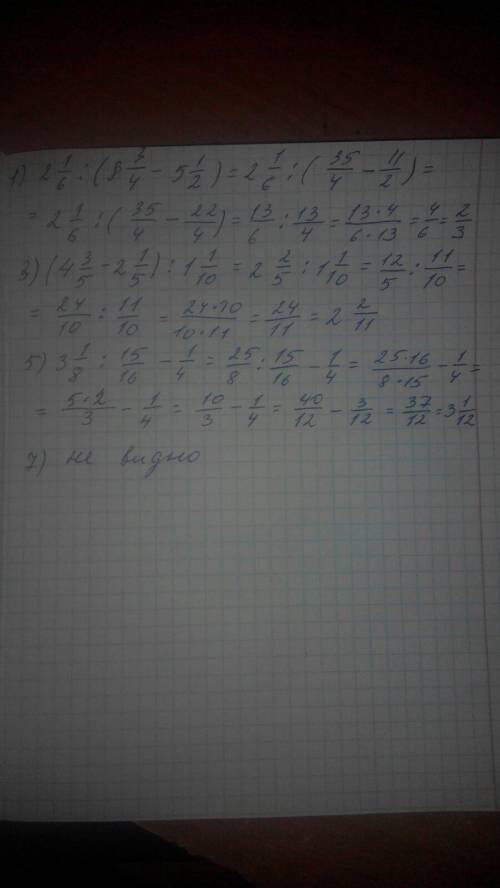 1) 2 1/6 : (8 3/4 - 5 1/2) = 2 1/6 : (35/4 - 11/2) =
= 2 1/6 : (35/4 - 22/4) = 13/6 : 13/4 = 13·4/6·13 = 4/6 = 2/3
3) (4 3/5 - 2 1/5) : 1 1/10 = 2 2/5 : 1 1/10 = 12/5 : 11/10 =
= 24/10 : 11/10 = 24·10/10·11 = 24/11 = 2 2/11
5) 3 1/8 : 15/16 - 1/4 = 25/8 : 15/16 - 1/4 = 25·16/8·15 - 1/4 =
= 5·2/3 - 1/4 = 10/3 - 1/4 = 40/12 - 3/12 = 37/12 = 3 1/12
7) не видно